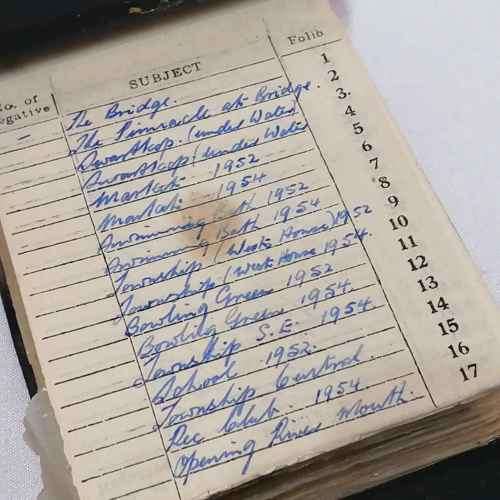 No. of Negative SUBJECT Folio
The Bridge. 1
The Pinnacle at Bridge. 2
Swartkop. (under Water) 3.
Swartkop: under Water 4
1952 5
1954 6
Swimming Bath 1952 7
Swimming Bath 1954 8
Township (West House) 1952 9
Township (West House 1954. 10
Bowling Green 1952 11
Bowling Green 1954. 12
Township S.E. 1954. 13
School 1952. 14
Township Central. 15
Rec Club. 1954. 16
Opening River Mouth. 17